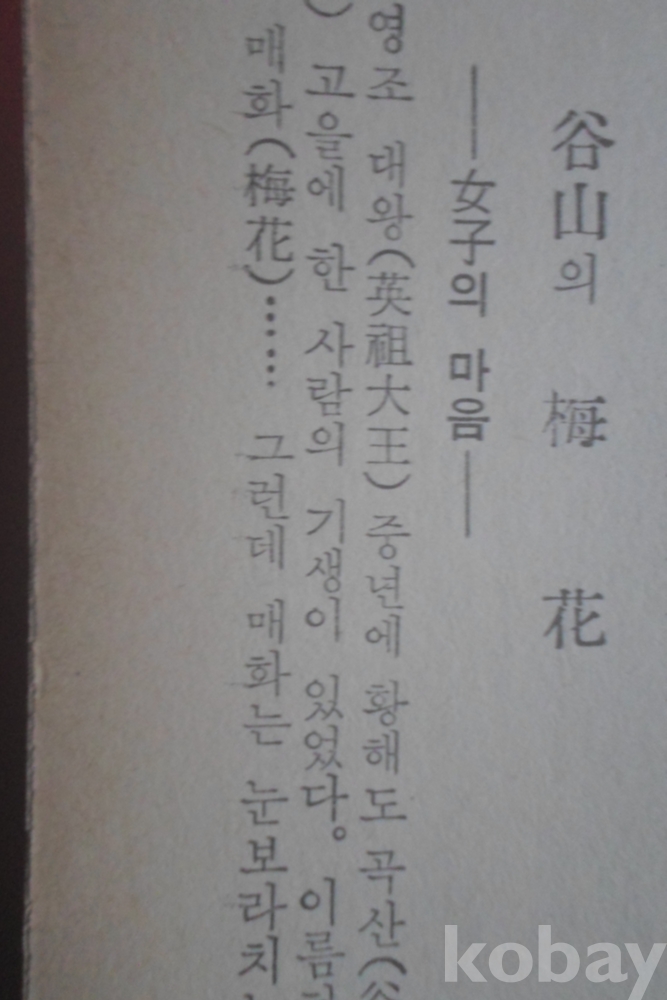 谷山의 梅花
──女子의 마음──
영조 대왕(英祖大王) 중년에 황해도 곡산(谷
) 고을에 한 사람의 기생이 있었다. 이름
매화(梅花)…… 그런데 매화는 눈보라치
kobay